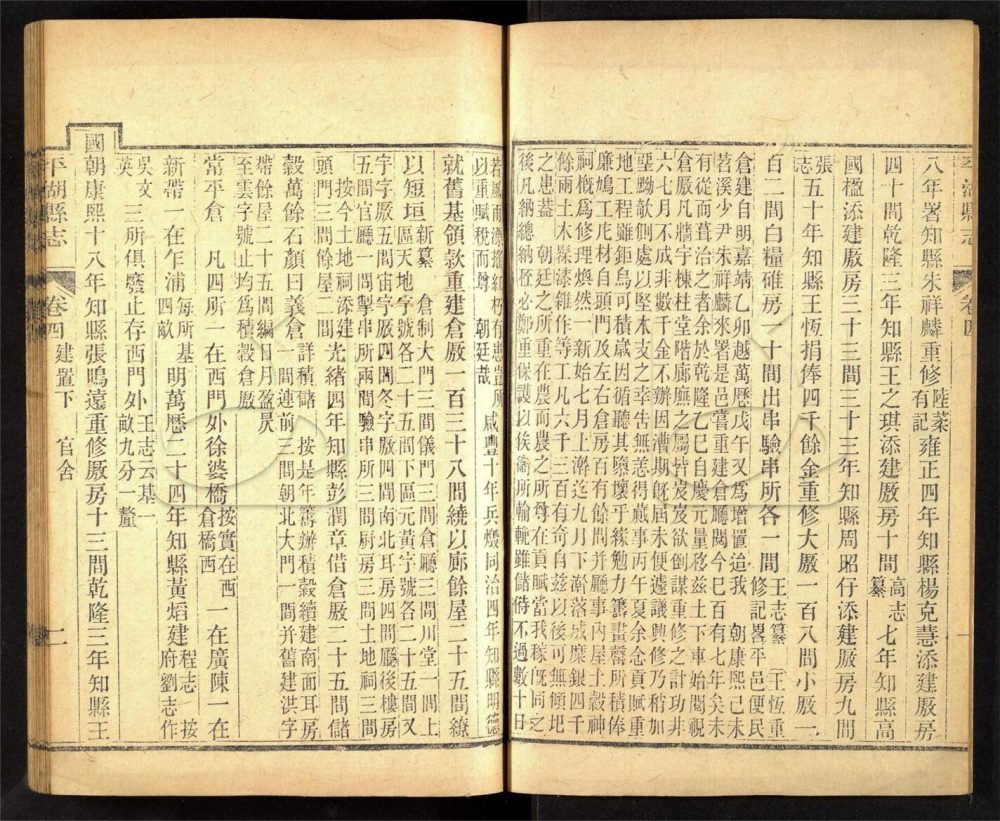 八年署知縣朱祥麟重修陸棻有記雍正四年知縣楊克慧添建厫房
四十間乾隆三年知縣王之琪添建厫房十間高志纂七年知縣高
國楹添建厫房三十三間三十三年知縣周昭仔添建厫房九間
張志五十年知縣王恆捐俸四千餘金重修大厫一百八間小厫一
百二間白糧碓房二十間出串驗串所各一間王志纂王恆重
修記畧平邑便民
倉建自明嘉靖乙卯越萬歷戊午又為增置迨我 朝康熙己未
苕溪少尹朱祥麟來署是邑嘗重建倉廳閱今已百有七年矣未
有從而葺治之者余於乾隆乙巳自慶元量移茲土下車始閱視
倉厫凡牆宇棟柱堂階廊廡之屬皆岌岌欲倒謀重修之計功非
六七月不成非數千金不辦因漕期旣屆未便遽議興修乃稍加
堊黝欹側處以堅木支之幸告無善得蕆事丙午夏余念貢賦重
地工程雖鉅烏可積嵗因循聽其隳壞乎䋣勉力籌畫罄所積俸
廉鳩工庀材自頭門及左右倉房百有餘間并廳事內屋土穀神
祠槪爲修理煥然一新始七月上澣迄九月下澣落成糜銀四千
餘兩土木髹漆雜作等工凡六千三百有奇自茲以後後可無傾圯
之患蓋 朝廷之所重在農而農之所尊在貢賦當我稼旣同之
後凡納總納秸必鄭重保護以俟衞所輸輓雖儲偫不過數十日
若風雨漂搖紅朽有患豈所
以重賦稅而尊 朝廷哉 咸豐十年兵燬同治四年知縣明德
就舊基領款重建倉厫一百三十八間繞以廊餘屋二十五間繚
以短垣新纂 倉制大門三間儀門三間倉廳三間川堂一間上
區天地字號各二十五間下區元黃字號各二十五間又
宇字厫五間宙字厫四間冬字厫四間南北耳房四間廳後樓房
五間官廳一間掣串所兩間驗串所三間廚房三間土地祠三間
按今土地祠添建
頭門三間餘屋二間光緒四年知縣彭潤章借倉厫二十五間儲
穀萬餘石顏曰義倉詳積儲 按是年籌辦積穀續建南面耳房
一間連前三間朝北大門一間并舊建洪字
帶餘屋二十五間編日月盈昃
至雲字號止均爲積穀倉厫
常平倉 凡四所一在西門外徐婆橋按實在西
倉橋西一在廣陳一在
新帶一在乍浦每所基
四畝明萬厯二十四年知縣黃焰建程志 按
府劉志作
吳文
英三所俱廢止存西門外王志云基一
畝九分一釐
國朝康熙十八年知縣張鳴遠重修厫房十三間乾隆三年知縣王
平湖縣志
卷四 建置下 官舍 二